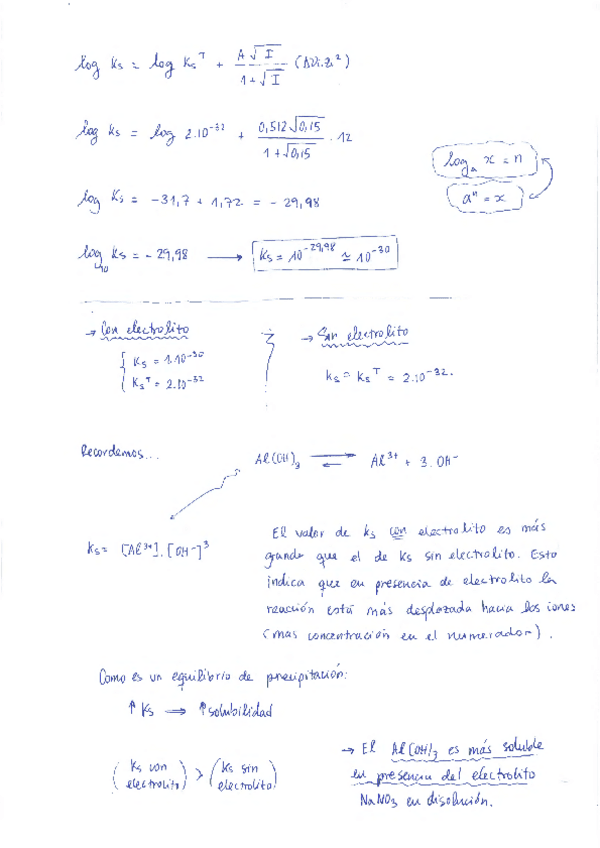 log Ks = log Ks^T + A√I / 1+√I (Δνi.zi²)
log Ks = log 2.10^-32 + 0,512√0,15 / 1+√0,15 . 12
log_a x = n
a^n = x
log Ks = -31,7 + 1,72 = - 29,98
log_10 Ks = - 29,98 → Ks = 10^-29,98 ≃ 10^-30
→ Con electrolito
Ks = 1.10^-30
Ks^T = 2.10^-32
→ Sin electrolito
Ks = Ks^T = 2.10^-32.
Recordemos...
Al(OH)3 ⇌ Al^3+ + 3.OH^-
Ks = [Al^3+].[OH^-]^3
El valor de Ks con electrolito es más
grande que el de Ks sin electrolito. Esto
indica que en presencia de electrolito la
reacción está más desplazada hacia los iones
(mas concentración en el numerador).
Como es un equilibrio de precipitación:
↑ Ks → ↑ solubilidad
(Ks con electrolito) > (Ks sin electrolito)
→ El Al(OH)3 es más soluble
en presencia del electrolito
NaNO3 en disolución.